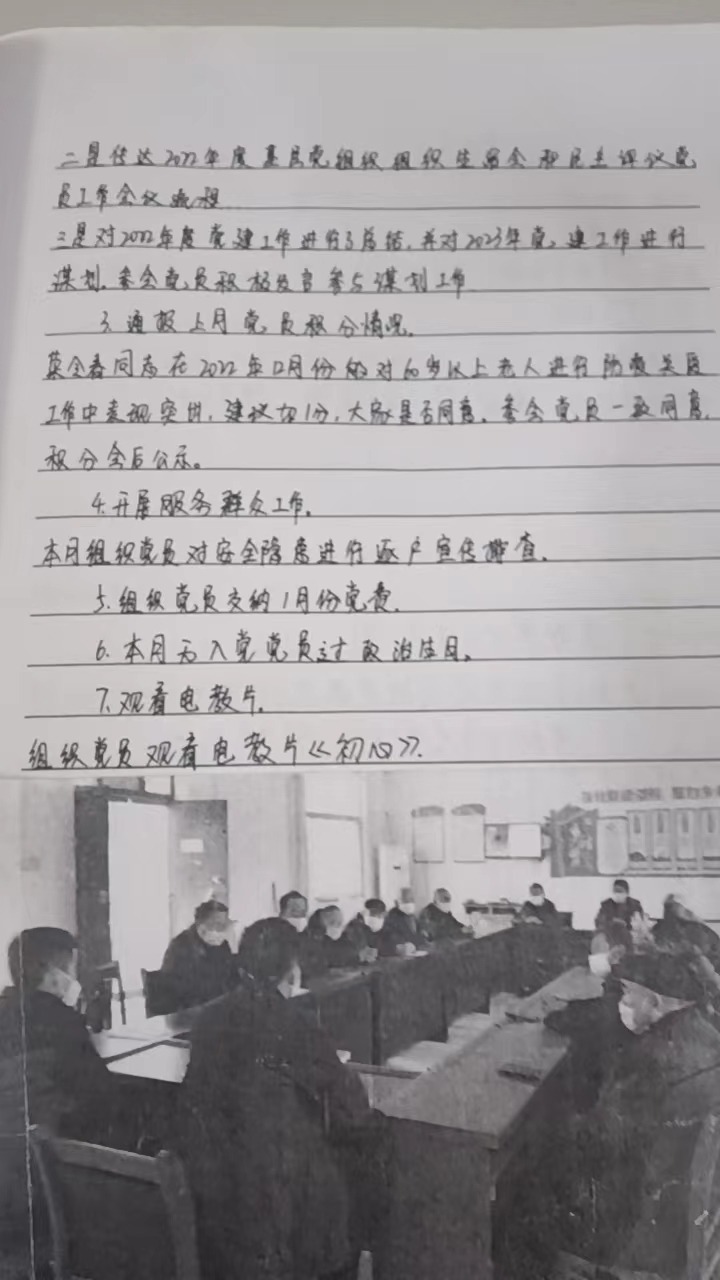 二是传达2022年度基层党组织组织生活会和民主评议党
员工作会议流程
三是对2022年度党建工作进行了总结,并对2023年党建工作进行
谋划,参会党员积极发言参与谋划工作
3.通报上月党员积分情况。
同志在2022年12月份的对60岁以上老人进行防疫关
工作中表现突出,建议加1分,大家是否同意,参会党员一致同意,
积分会后公示。
4.开展服务群众工作。
本月组织党员对安全隐患进行逐户宣传排查.
5.组织党员交纳1月份党费.
6.本月无入党党员过政治生日。
7.观看电教片.
组织党员观看电教片《初心》.